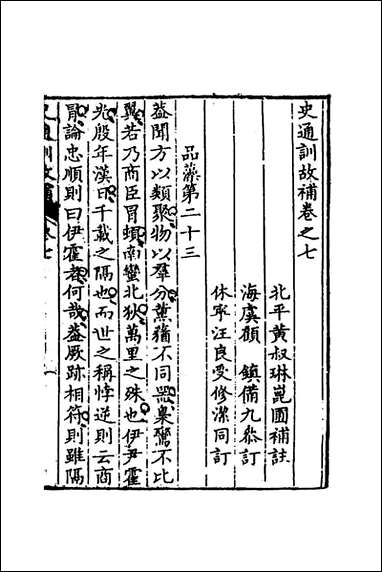 史通訓故補卷之七
北平黃叔琳崑圃補註
海虞顧 鎮備九叅訂
休寧汪良受修潔同訂
品藻第二十三
葢聞方以類聚物以羣分薰蕕不同器梟鸞不比
翼若乃商臣冒頓南蠻北狄萬里之殊也伊尹霍
光殷年漢日千載之隔也而世之稱悖逆則云商
冒論忠順則曰伊霍者何哉葢厥跡相符則雖隔